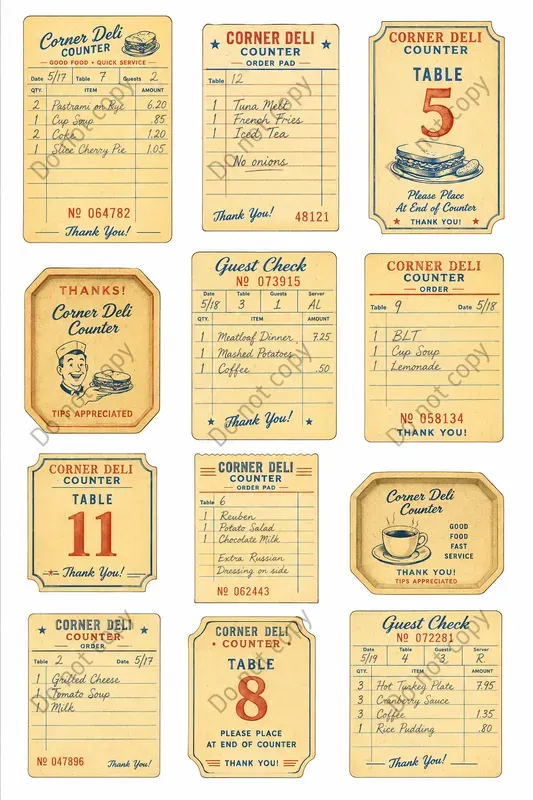 Corner Deli
COUNTER
GOOD FOOD • QUICK SERVICE
Date 5/17 Table 7 Guests 2
QTY. ITEM AMOUNT
2 Pastrami on Rye 6.20
1 Cup Soup .85
2 Coke 1.20
1 Slice Cherry Pie 1.05
Nº 064782
Thank You!
Do not copy
CORNER DELI
COUNTER
ORDER PAD
Table 12
1 Tuna Melt
1 French Fries
1 Iced Tea
No onions
Thank You! 48121
Do not copy
CORNER DELI
COUNTER
TABLE
5
Please Place
At End of Counter
THANK YOU!
Do not copy
THANKS!
Corner Deli
Counter
TIPS APPRECIATED
Do not copy
Guest Check
Nº 073915
Date Table Guests Server
5/18 3 1 AL
QTY. ITEM AMOUNT
1 Meatloaf Dinner 7.25
1 Mashed Potatoes
1 Coffee .50
Thank You!
Do not copy
CORNER DELI
COUNTER
ORDER
Table 9 Date 5/18
1 BLT
1 Cup Soup
1 Lemonade
Nº 058134
THANK YOU!
Do not copy
CORNER DELI
COUNTER
TABLE
11
Thank You!
CORNER DELI
COUNTER
ORDER PAD
Table 6
1 Reuben
1 Potato Salad
1 Chocolate Milk
Extra Russian
Dressing on side
Nº 062443
Corner Deli
Counter
GOOD
FOOD
FAST
SERVICE
THANK YOU!
TIPS APPRECIATED
CORNER DELI
COUNTER
ORDER
Table 2 Date 5/17
1 Grilled Cheese
1 Tomato Soup
1 Milk
Nº 047896 Thank You!
Do not copy
CORNER DELI
COUNTER
TABLE
8
PLEASE PLACE
AT END OF COUNTER
THANK YOU!
Do not copy
Guest Check
Nº 072281
Date Table Guests Server
5/19 4 3 R.
QTY. ITEM AMOUNT
3 Hot Turkey Plate 7.95
3 Cranberry Sauce
3 Coffee 1.35
1 Rice Pudding .80
Thank You!
Do not copy